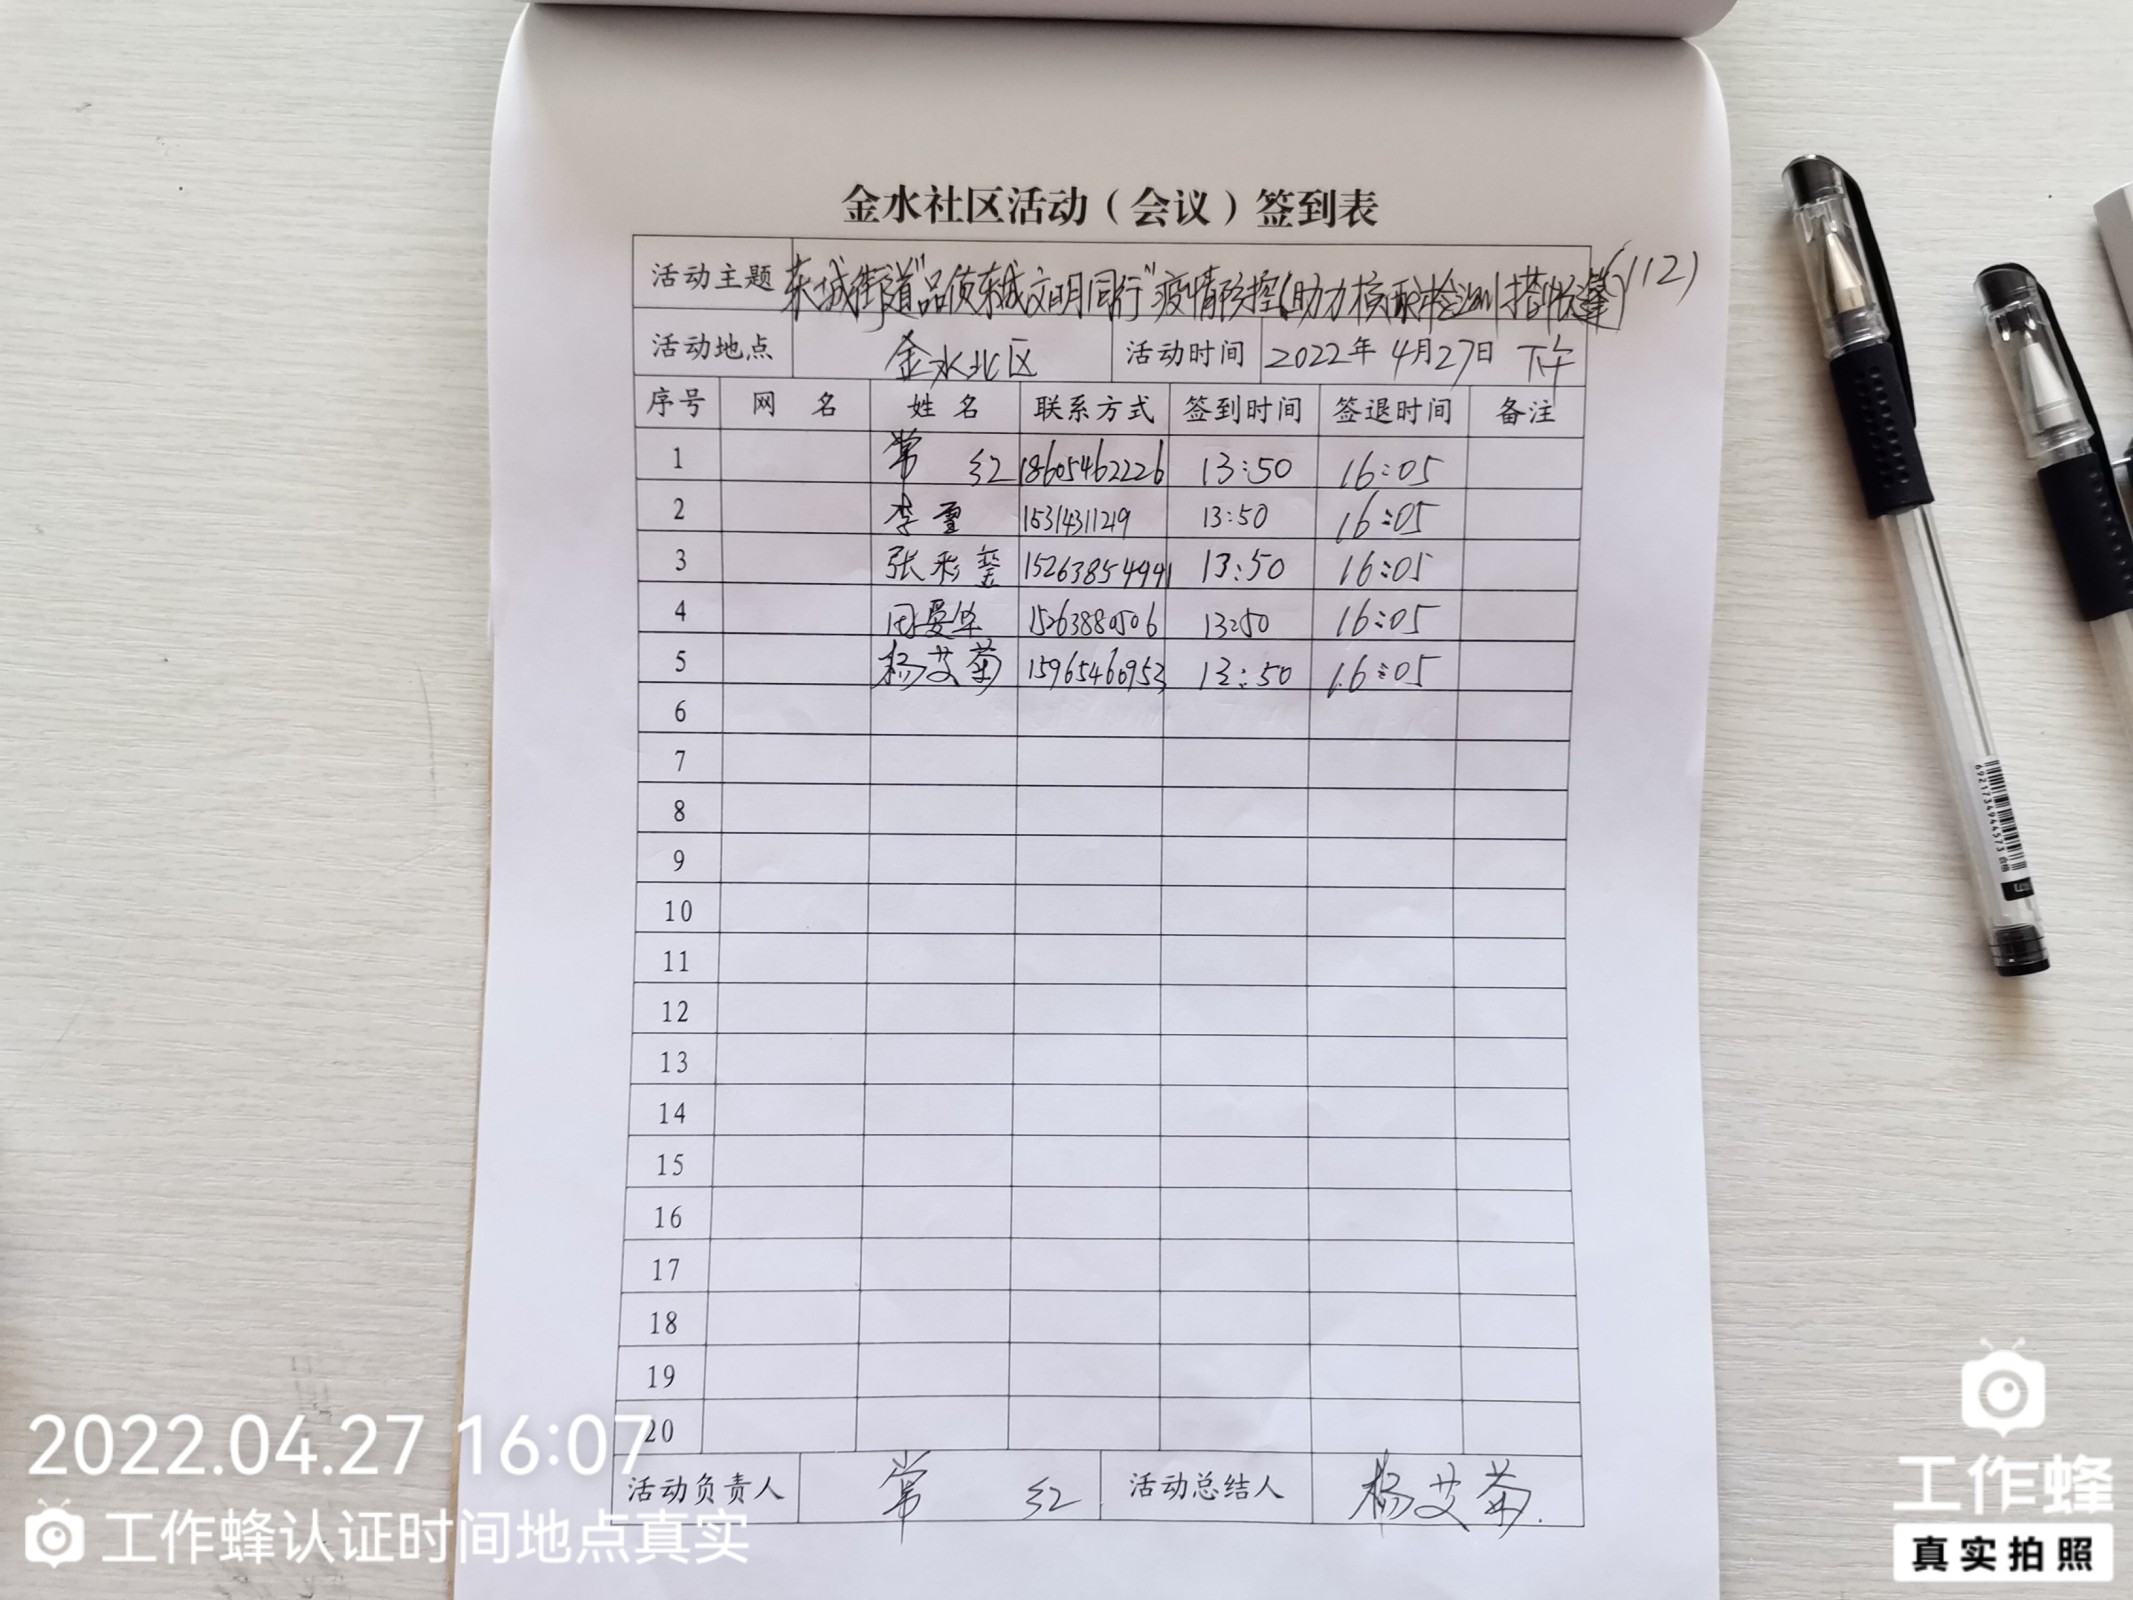 金水社区活动（会议）签到表
活动主题 东城街道"品质东城文明同行"疫情防控(助力核酸检测搭帐篷)(112)
活动地点 金水北区 活动时间 2022年 4月27日 下午
序号 网 名 姓 名 联系方式 签到时间 签退时间 备注
1 常 红 18605462226 13:50 16:05
2 李雪 15314311219 13:50 16:05
3 张彩 13:50 16:05
4 15263880506 13:50 16:05
5 杨艾菊 15965460953 13:50 16:05
6
7
8
9
10
11
12
13
14
15
16
17
18
19
20
活动负责人 常 红 活动总结人 杨艾菊
2022.04.27 16:07
工作蜂认证时间地点真实
工作蜂
真实拍照
6921734944573